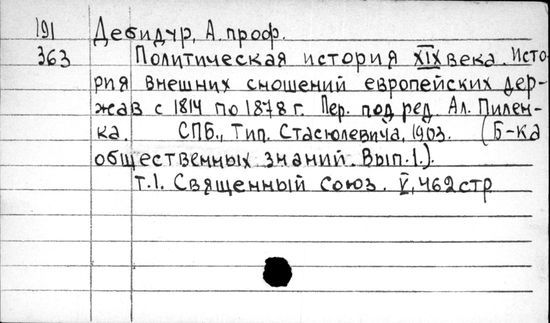 191 Дебидур, А. проф.
363 Политическая история XIX века. Исто-
рия внешних сношений европейских дер-
жав с 1814 по 1878 г. Пер. под ред. Ал. Пилен-
ка. СПБ., Тип. Стасюлевича, 1903. (Б-ка
общественных знаний. Вып. 1.).
т.1. Священный союз. V, 462 стр